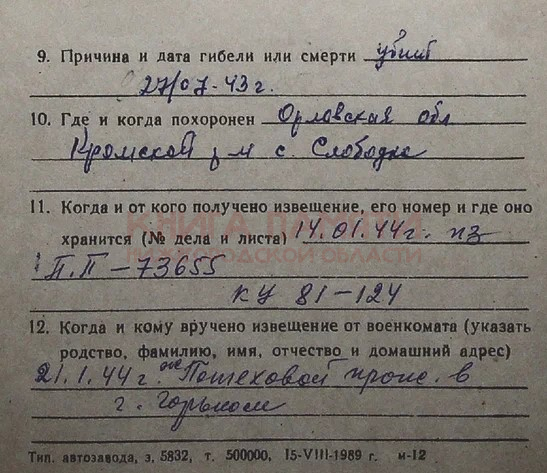 9. Причина и дата гибели или смерти убит
27/07-43 г.
10. Где и когда похоронен Орловская обл
Кромской р-н с. Слободка
11. Когда и от кого получено извещение, его номер и где оно
хранится (№ дела и листа) 14.01.44 г. из
П.П-73655
КУ 81-124
12. Когда и кому вручено извещение от военкомата (указать
родство, фамилию, имя, отчество и домашний адрес)
21.1.44 г. Потеховой прож. в
г. Горьком
Тип. автозавода, з. 5832, т. 500000, 15-VIII-1989 г. м-12
КНИГА ПАМЯТИ
НИЖЕГОРОДСКОЙ ОБЛАСТИ